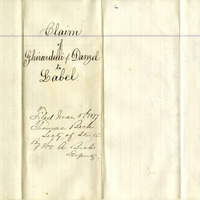 Claim
of
Ghirardelli & Danzel
to
Label.
Filed Mar 5th 1877
Thomas Beck
Secty of State
By Wm A. Beck
Deputy